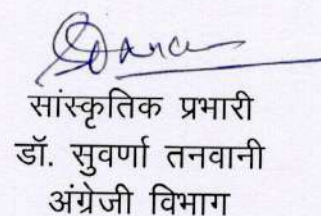 सांस्कृतिक प्रभारी
डॉ. सुवर्णा तनवानी
अंग्रेजी विभाग